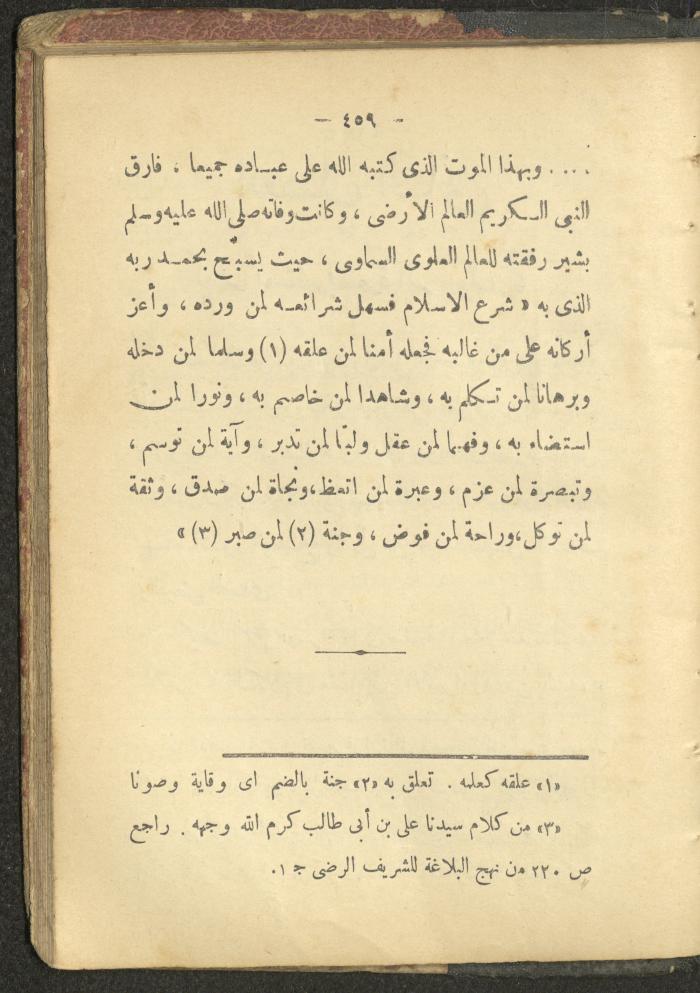 — ٤٥٩ —
.... وبهذا الموت الذى كتبه الله على عباده جميعا ، فارق
النبى الكريم العالم الأرضى ، وكانت وفاته صلى الله عليه وسلم
بشير رفقته للعالم العلوى السماوى ، حيث يسبّح بحمد ربه
الذى به « شرع الاسلام فسهل شرائعه لمن ورده ، وأعز
أركانه على من غالبه فجعله أمنا لمن علقه (١) وسلما لمن دخله
وبرهانا لمن تكلم به ، وشاهدا لمن خاصم به ، ونورا لمن
استضاء به ، وفهما لمن عقل ولبّا لمن تدبر ، وآية لمن توسم ،
وتبصرة لمن عزم ، وعبرة لمن اتعظ، ونجاة لمن صدق ، وثقة
لمن توكل، وراحة لمن فوض ، وجنة (٢) لمن صبر (٣) »
«١» علقه كعلمه . تعلق به «٢» جنة بالضم اى وقاية وصونا
«٣» من كلام سيدنا على بن أبى طالب كرم الله وجهه . راجع
ص ٢٢٠ من نهج البلاغة للشريف الرضى ج ١.